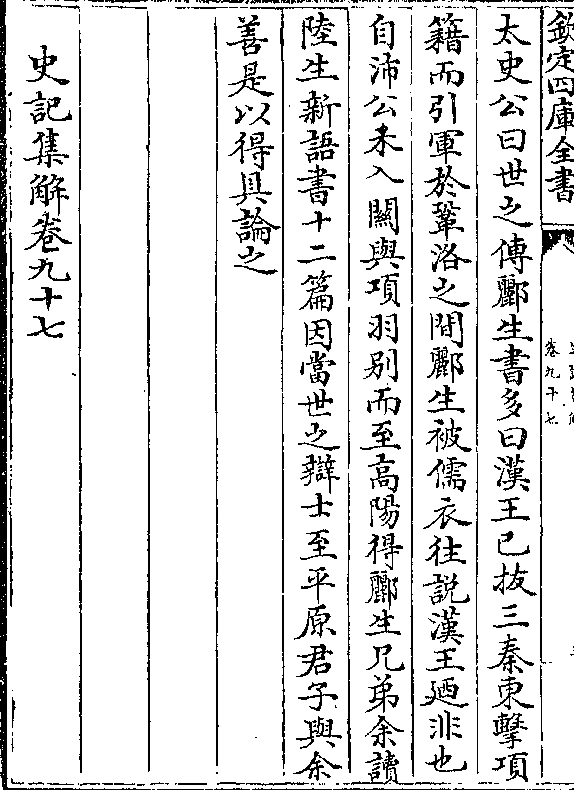 欽定四庫全書
卷九十七
太史公曰世之傳酈生書多曰漢王已拔三秦東擊項
籍而引軍於鞏洛之間酈生被儒衣往説漢王廼非也
自沛公未入關與項羽别而至高陽得酈生兄弟余讀
陸生新語書十二篇因當世之辯士至平原君子與余
善是以得具論之
史記集解卷九十七